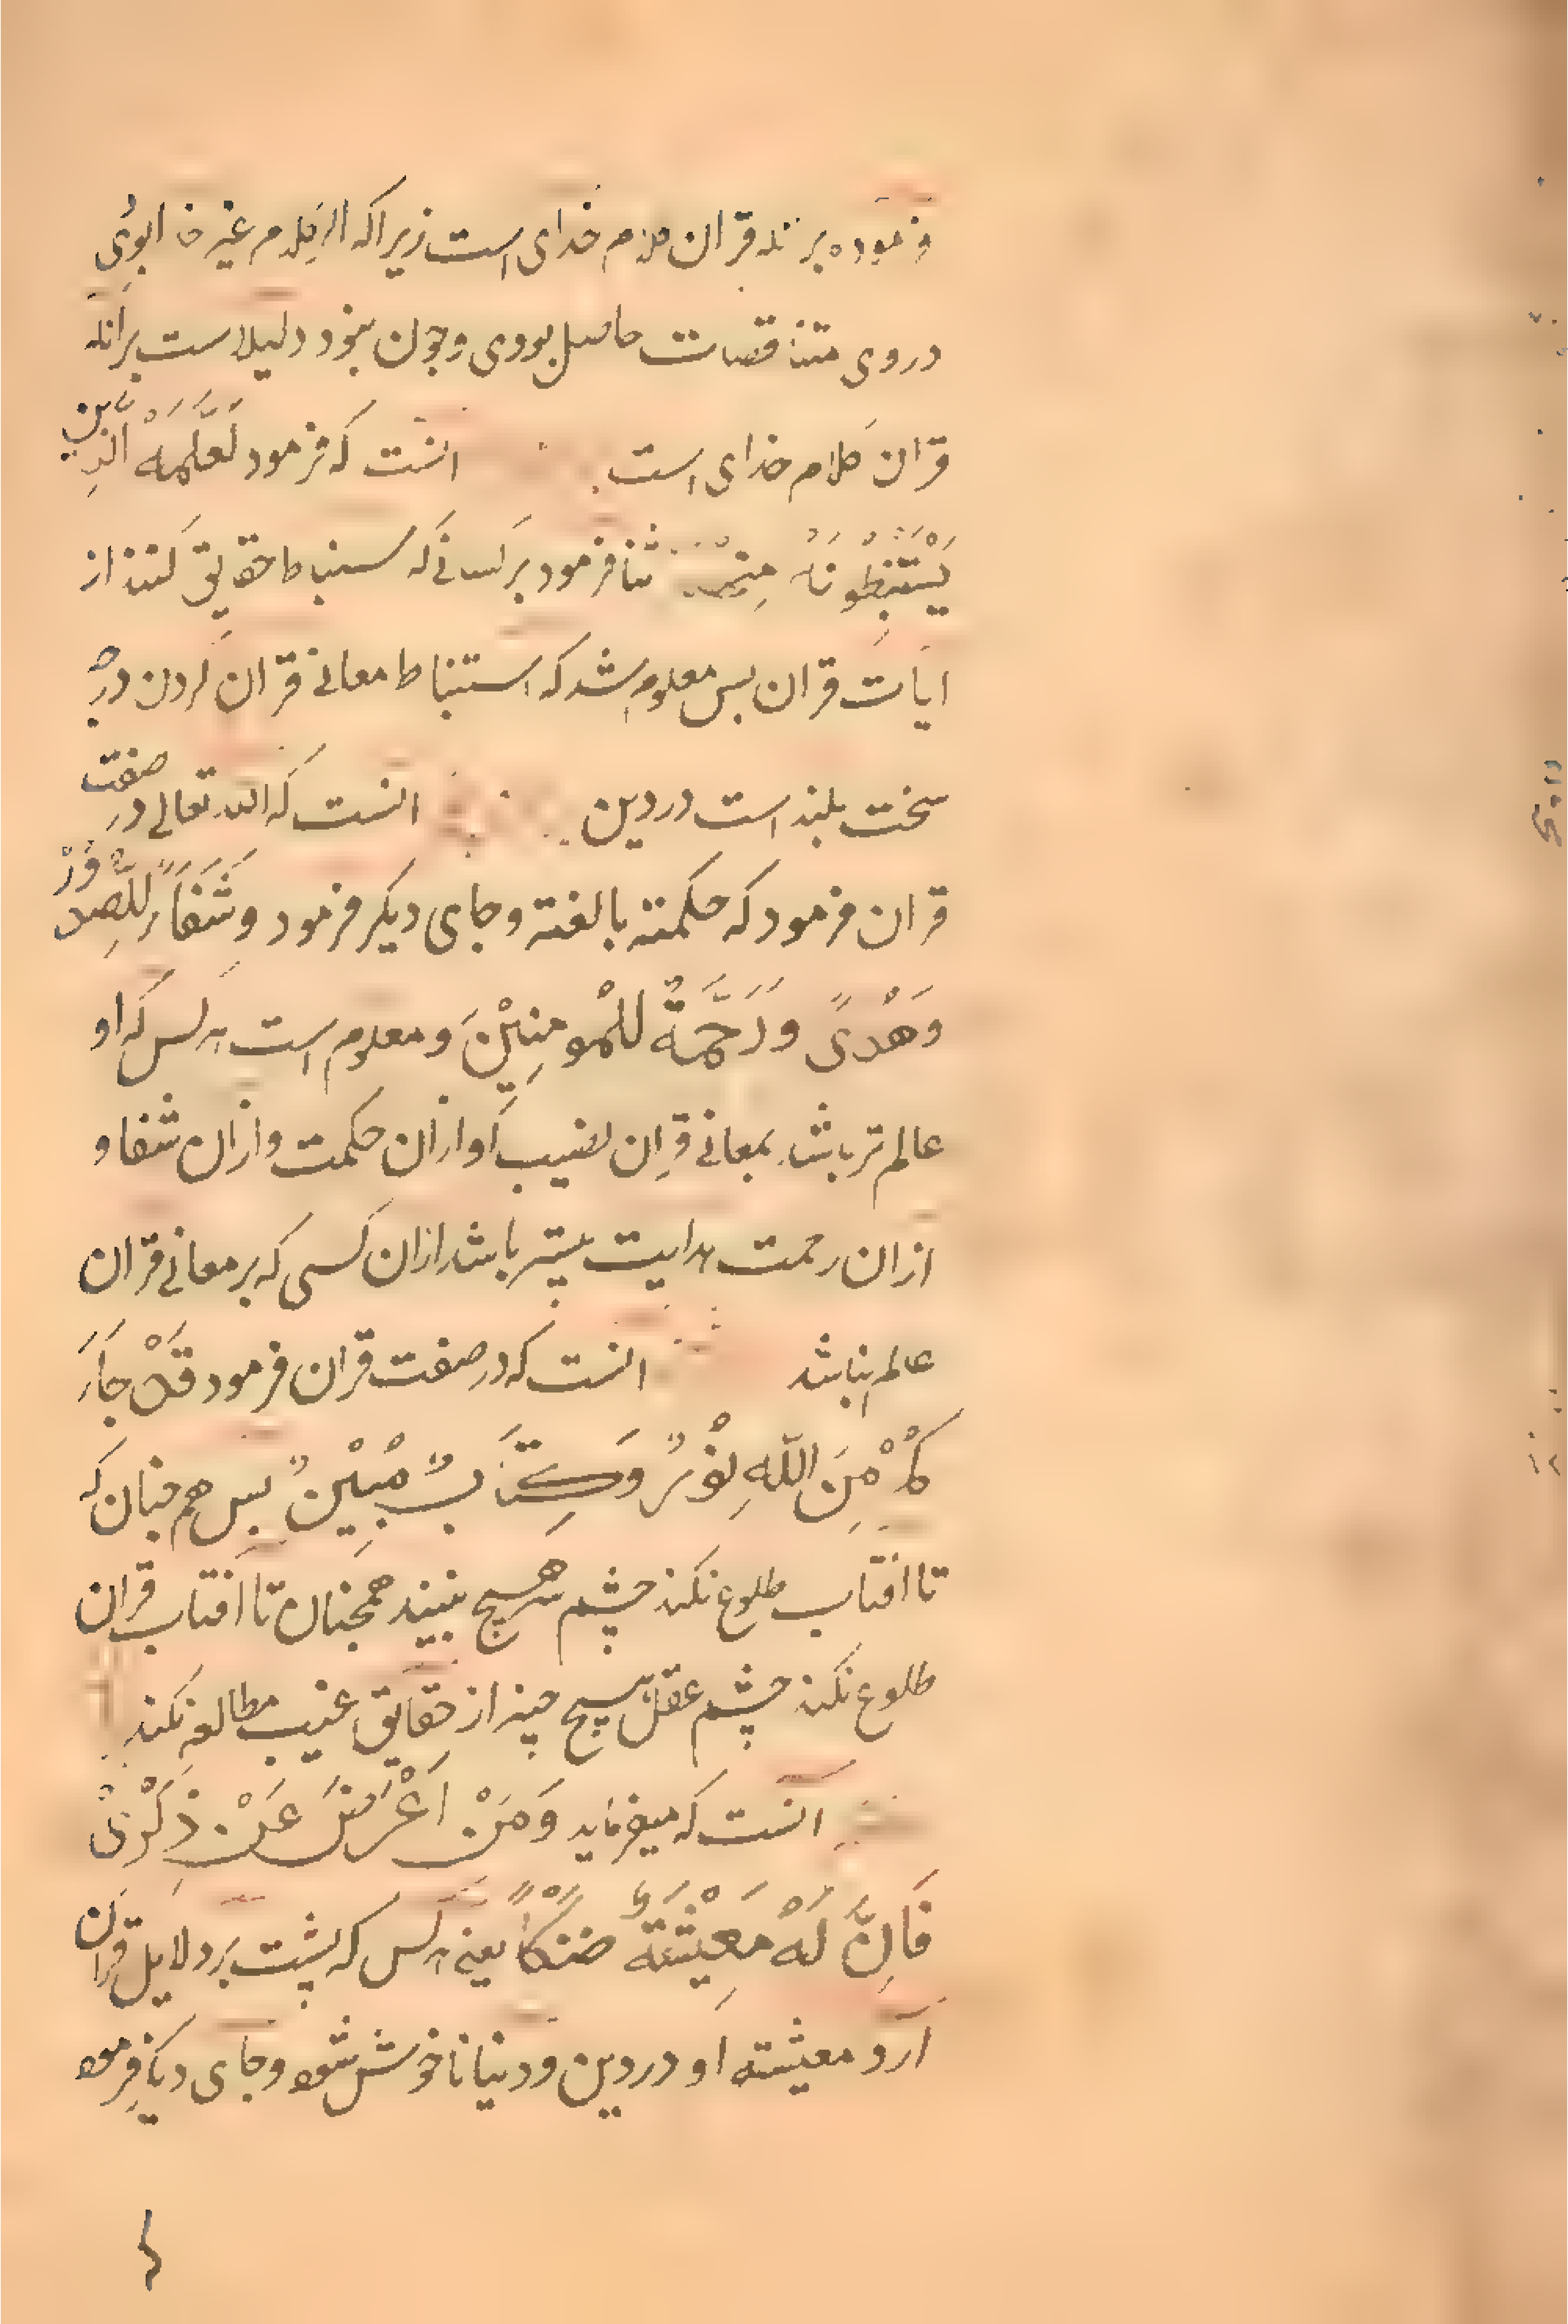 فرموده برانکه قران کلام خدای است زیرا که اگر کلام غیر خدا بودی
در وی متناقضات حاصل بودی و چون نبود دلیلاست برانکه
قران کلام خدای است انست که فرمود لَعَلَّمَهْ الَّذِینَ
یَسْتَنْبِطُوْنَهُ مِنْهُمْ ثنا فرمود بر کسانی که استنباط حقایق کنند از
ایات قران بس معلوم شد که استنباط معانی قران کردن درجه
سخت بلند است در دین انست که الله تعالی در صفت
قران فرمود که حکمته بالغته و جای دیکر فرمود وِشَفَاءً لِلصُّدُوْرْ
وَهْدیً وَرَحَمَّةٌ لِلْمومِنِیْنَ و معلوم است هر کس که او
عالم تر باشد بمعانی قران نصیب او از ان حکمت و از ان شفا و
از ان رحمت هدایت بیشتر باشد از ان کسی که بر معانی قران
عالم نباشد انست که در صفت قران فرمود قَدْ جَاءَ
کُمْ مِنَ اللّهِ نُوْرٌ وَکِتَابٌ مُبِیْنٌ بس هم چنان که
تا افتاب طلوع نکند چشم سر هیچ نبیند همچنان تا افتاب قران
طلوع نکند چشم عقل هیچ چیز از حقایق غیب مطالعه نکند
انست که میفرماید وَمَنْ اَعْرَضَ عَنْ ذِکْرِیْ
فَاِنَّ لَهْ مَعِیْشَةً ضَنْکاً یعنی هر کس که پشت بر دلایل قران
ارد معیشته او در دین و دنیا ناخوش شود و جای دیکر فرمود